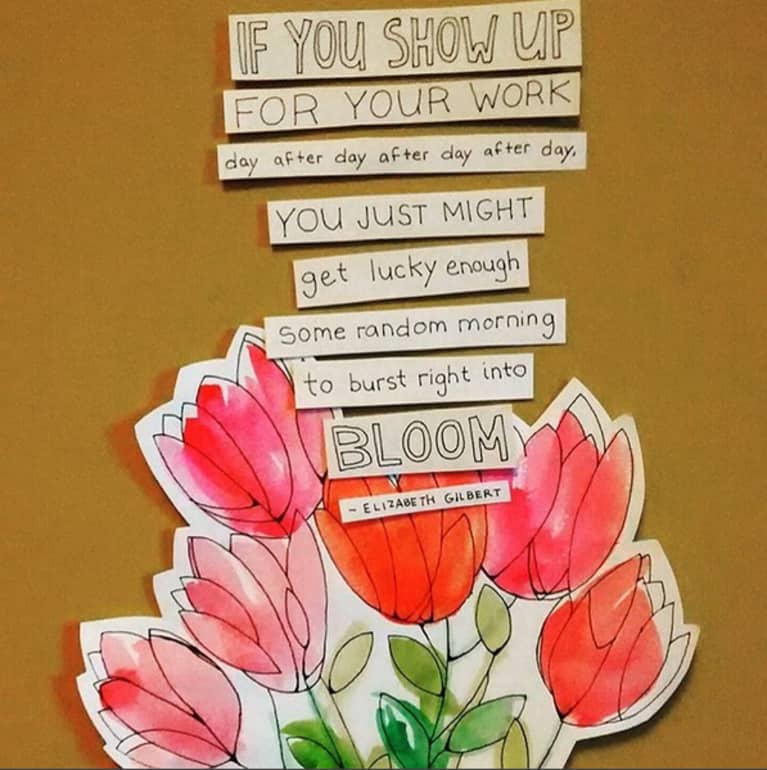 IF YOU SHOW UP
FOR YOUR WORK
day after day after day after day,
YOU JUST MIGHT
get lucky enough
some random morning
to burst right into
BLOOM
- ELIZABETH GILBERT